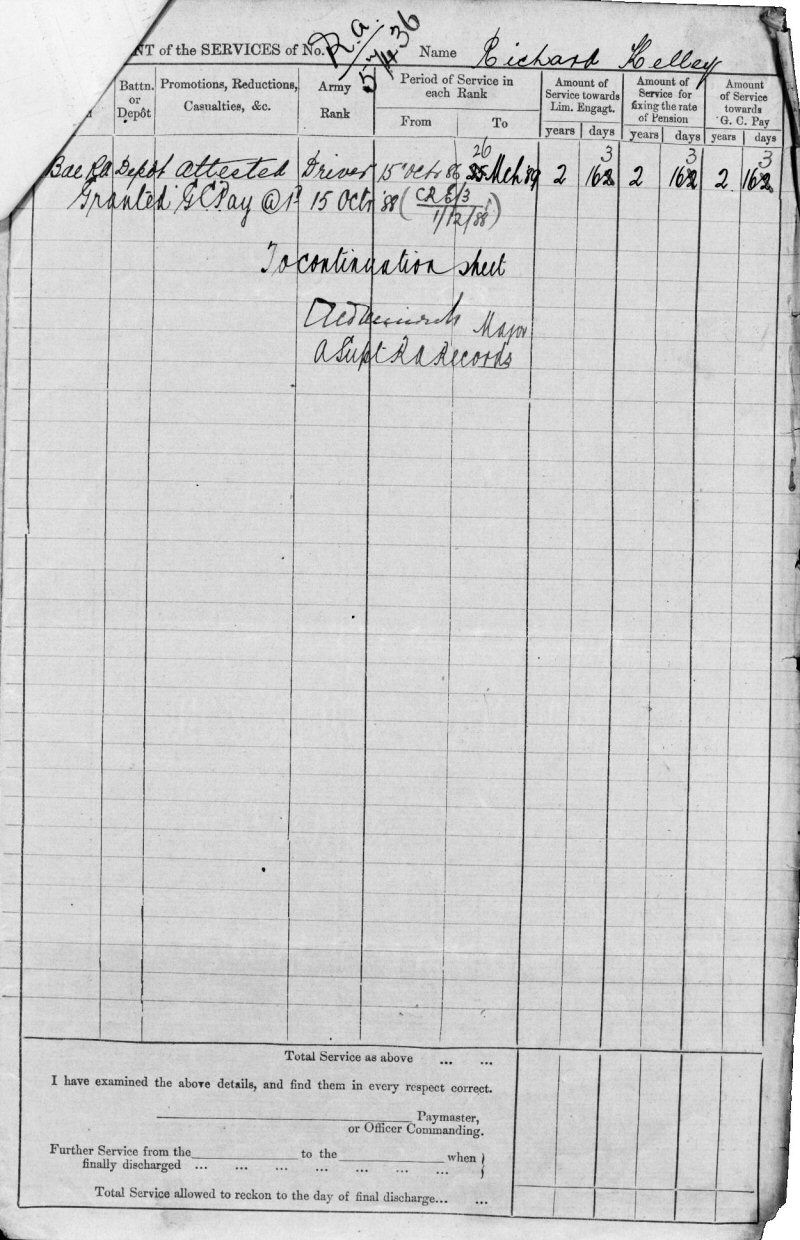 NT of the SERVICES of No. R.a./57436 Name Richard Kelley
Battn. or Depôt
Promotions, Reductions, Casualties, &c.
Army Rank
Period of Service in each Rank
From To
Amount of Service towards Lim. Engagt.
years days
Amount of Service for fixing the rate of Pension
years days
Amount of Service towards G. C. Pay
years days
26 3 3 3
Bde RA Depôt Attested Driver 15 Octr 86 25 Mch 89 2 162 2 162 2 162
Granted GCPay @ 1d 15 Octr '88 (CRE/3 1/12/88)
To continuation sheet
Major
A Supt RA Records
Total Service as above ... ...
I have examined the above details, and find them in every respect correct.
Paymaster,
or Officer Commanding.
Further Service from the to the when
finally discharged ... ... ... ... ... ... ...
Total Service allowed to reckon to the day of final discharge... ...